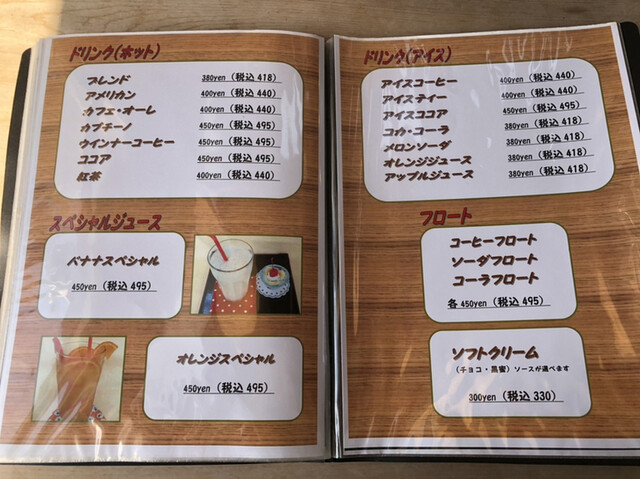 ドリンク(ホット)
ブレンド 380yen(税込 418)
アメリカン 400yen(税込 440)
カフェ・オーレ 400yen(税込 440)
カプチーノ 450yen(税込 495)
ウインナーコーヒー 450yen(税込 495)
ココア 450yen(税込 495)
紅茶 400yen(税込 440)
スペシャルジュース
バナナスペシャル
450yen(税込 495)
オレンジスペシャル
450yen(税込 495)
ドリンク(アイス)
アイスコーヒー 400yen(税込 440)
アイスティー 400yen(税込 440)
アイスココア 450yen(税込 495)
コカ・コーラ 380yen(税込 418)
メロンソーダ 380yen(税込 418)
オレンジジュース 380yen(税込 418)
アップルジュース 380yen(税込 418)
フロート
コーヒーフロート
ソーダフロート
コーラフロート
各 450yen(税込 495)
ソフトクリーム
(チョコ・黒蜜)ソースが選べます
300yen(税込 330)